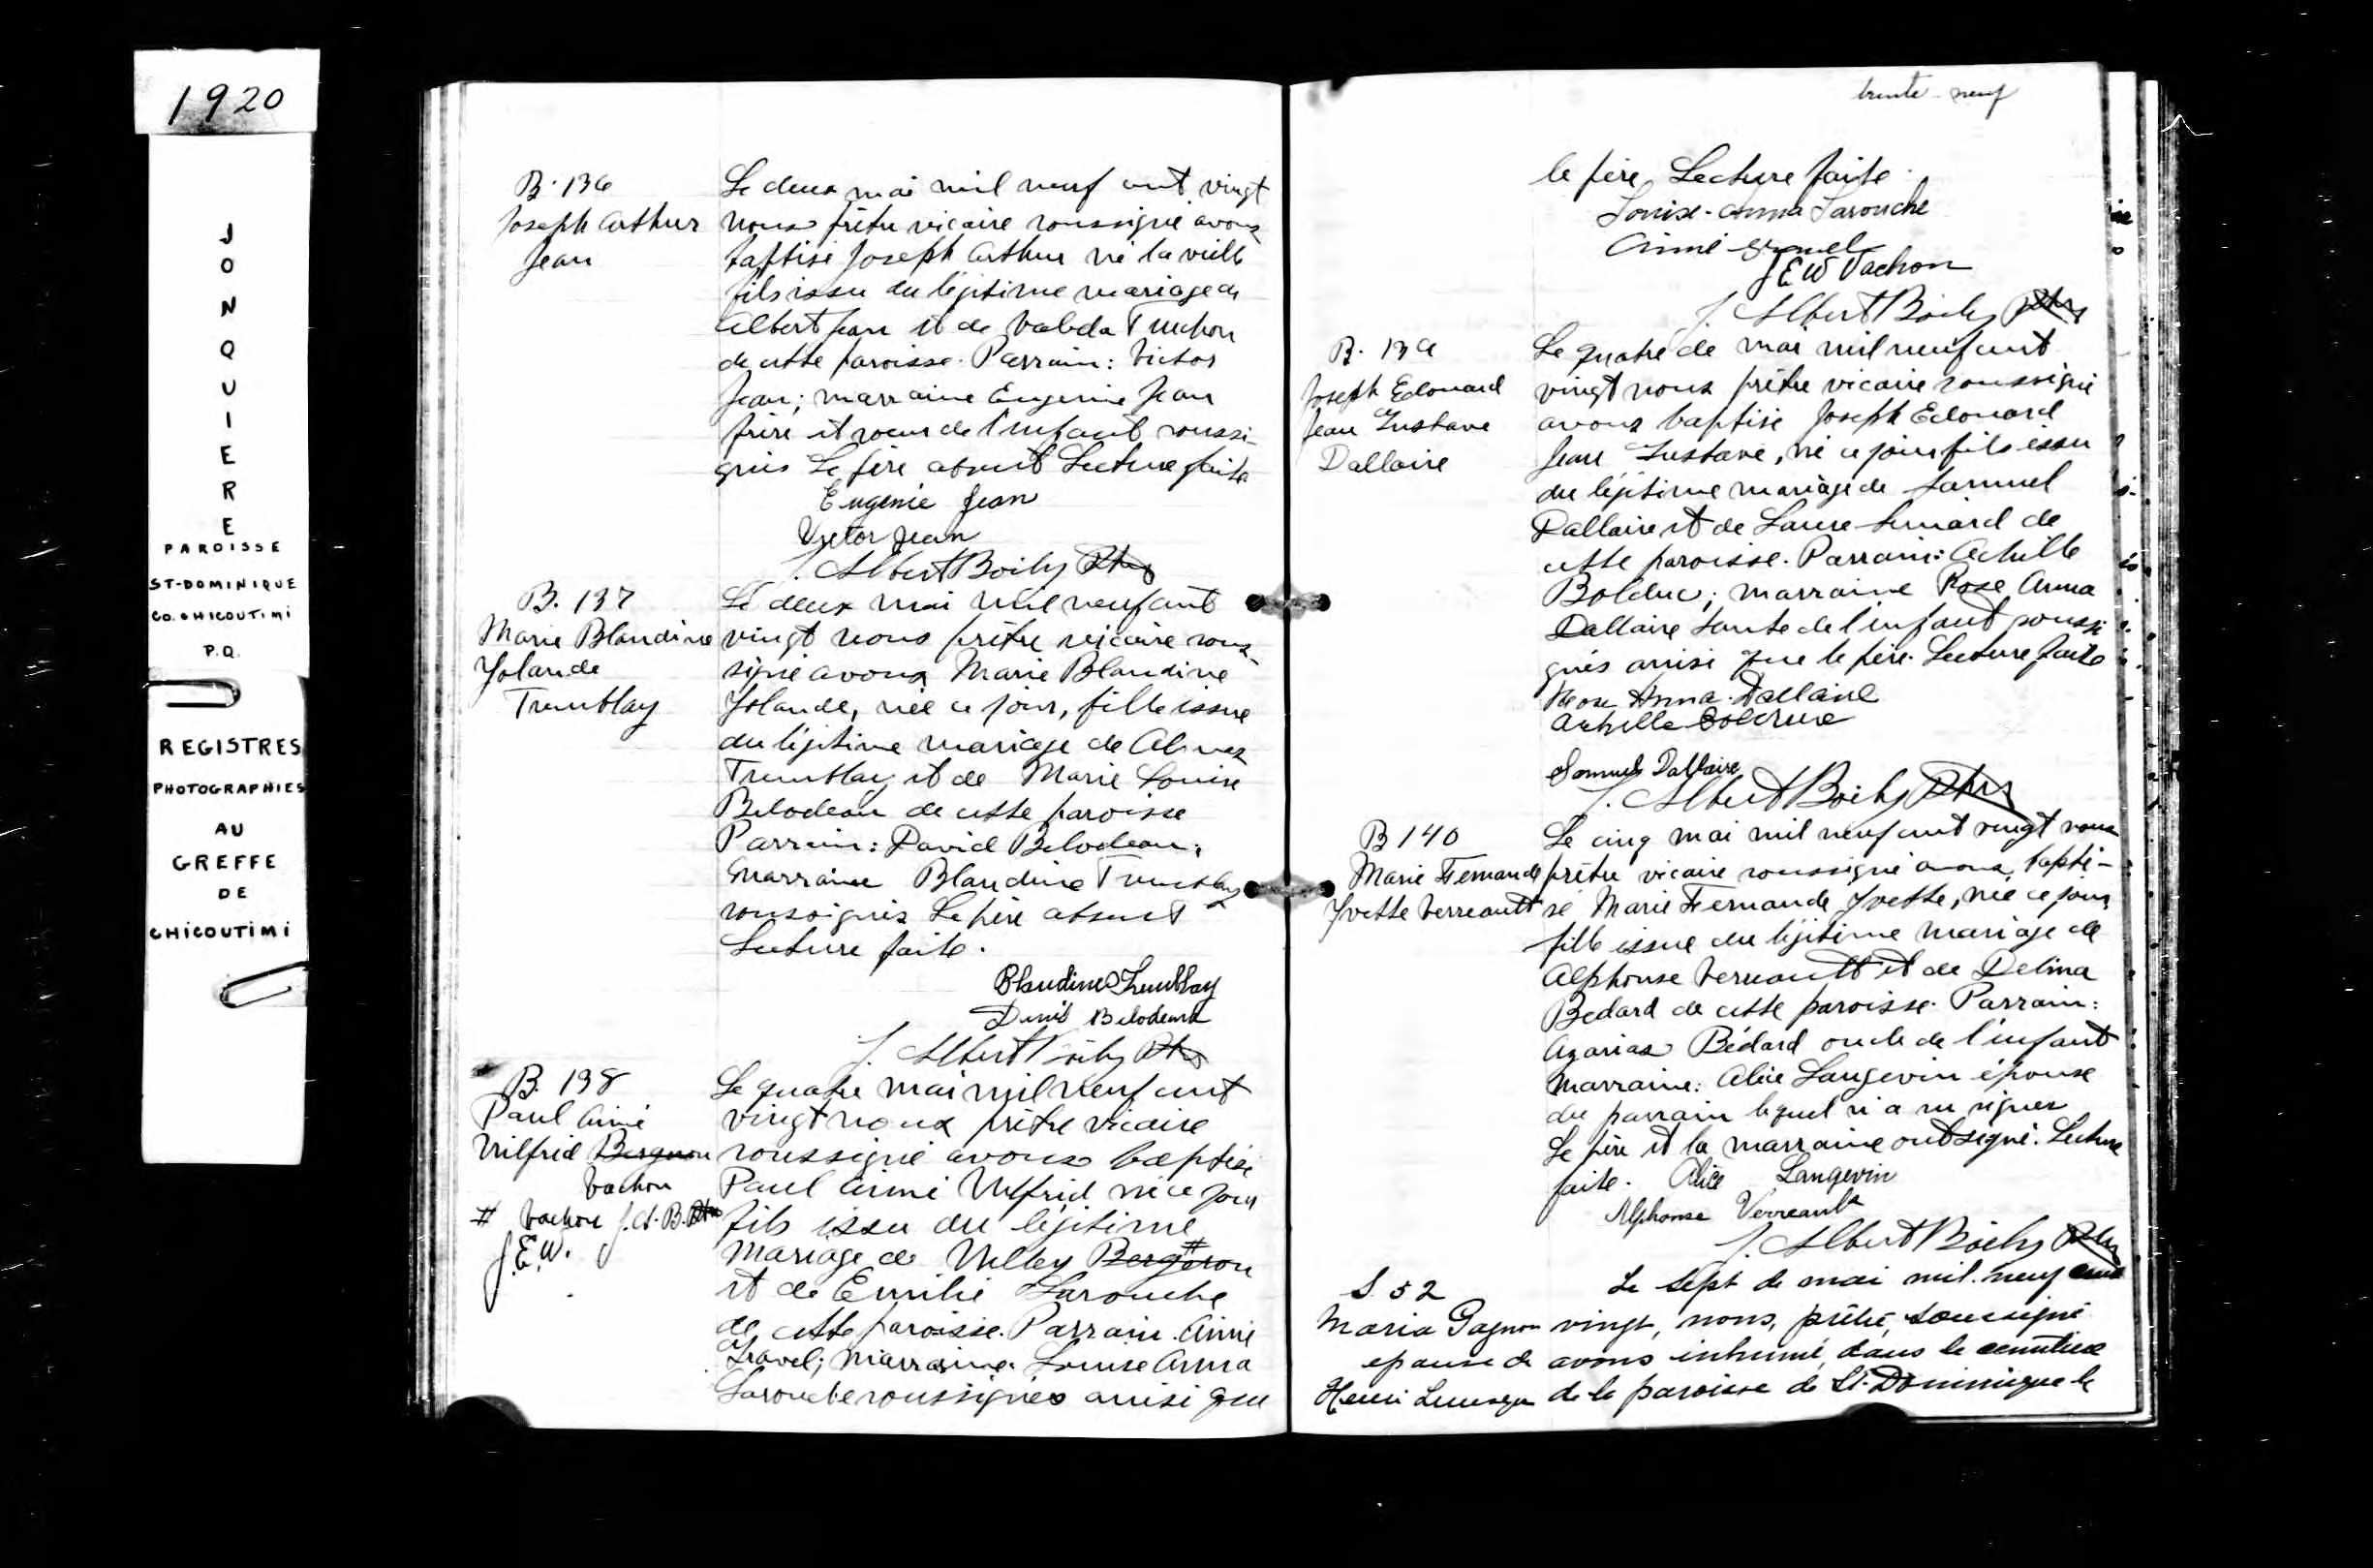 1920
JONQUIERE
PAROISSE
ST-DOMINIQUE
CO. CHICOUTIMI
P.Q.
REGISTRES
PHOTOGRAPHIES
AU
GREFFE
DE
CHICOUTIMI
B. 136
Joseph Arthur
Jean
Le deux mai mil neuf cent vingt
nous prêtre vicaire soussigné avons
baptisé Joseph Arthur né la veille
fils issu du légitime mariage de
Albert Jean et de Valeda Truchon
de cette paroisse. Parrain: Victor
Jean; marraine Eugenie Jean
frère et soeur de l'enfant soussi-
gnés Le père absent Lecture faite
Eugénie Jean
Victor Jean
J. Albert Boily Ptre
B. 137
Marie Blandine
Yolande
Tremblay
Le deux mai mil neuf cent
vingt nous prêtre vicaire sous-
signé avons Marie Blandine
Yolande, née ce jour, fille issue
du légitime mariage de
Tremblay et de Marie Louise
Belodeau de cette paroisse
Parrain: David Belodeau;
marraine Blandine Tremblay
soussignés Le père absent
Lecture faite.
Blandine Tremblay
Belodeau
J. Albert Boily Ptre
B. 138
Paul Aimé
Wilfrid Bergeron
Vachon
# Vachon J.A.B. Ptre
J.E.W.
Le quatre mai mil neuf cent
vingt nous prêtre vicaire
soussigné avons baptisé
Paul Aimé Wilfrid né ce jour
fils issu du légitime
mariage de Willey Bergeron #
et de Emilie Larouche
de cette paroisse. Parrain. Aimé
Gravel; marraine: Louise Anna
Larouche soussignés ainsi que
trente-neuf
le père. Lecture faite.
Louise-Anna Larouche
Aimé Gravel
J E W Vachon
J. Albert Boily Ptre
B. 139
Joseph Edouard
Jean Gustave
Dallaire
Le quatre de mai mil neuf cent
vingt nous prêtre vicaire soussigné
avons baptisé Joseph Edouard
Jean Gustave, né ce jour fils issu
du légitime mariage de Samuel
Dallaire et de Laure Simard de
cette paroisse. Parrain: Achille
Bolduc; marraine Rose Anna
Dallaire tante de l'enfant soussi
gnés ainsi que le père. Lecture faite
Rose Anna Dallaire
Achille Bolduc
Samuel Dallaire
J. Albert Boily Ptre
B 140
Marie Fernande
Yvette Verreault
Le cinq mai mil neuf cent vingt nous
prêtre vicaire soussigné avons bapti-
sé Marie Fernande Yvette, née ce jour
fille issue du légitime mariage de
Alphonse Verreault et de Delina
Bedard de cette paroisse. Parrain:
Azarias Bédard oncle de l'enfant
Marraine: Alice Langevin épouse
du parrain lequel n'a su signer
Le père et la marraine ont signé. Lecture
faite. Alice Langevin
Alphonse Verreault
J. Albert Boily Ptre
S. 52
Maria Gagnon
epouse de
Henri
Le sept de mai mil-neuf cent
vingt, nous, prêtre, soussigné
avons inhumé, dans le cimetière
de la paroisse de St-Dominique le